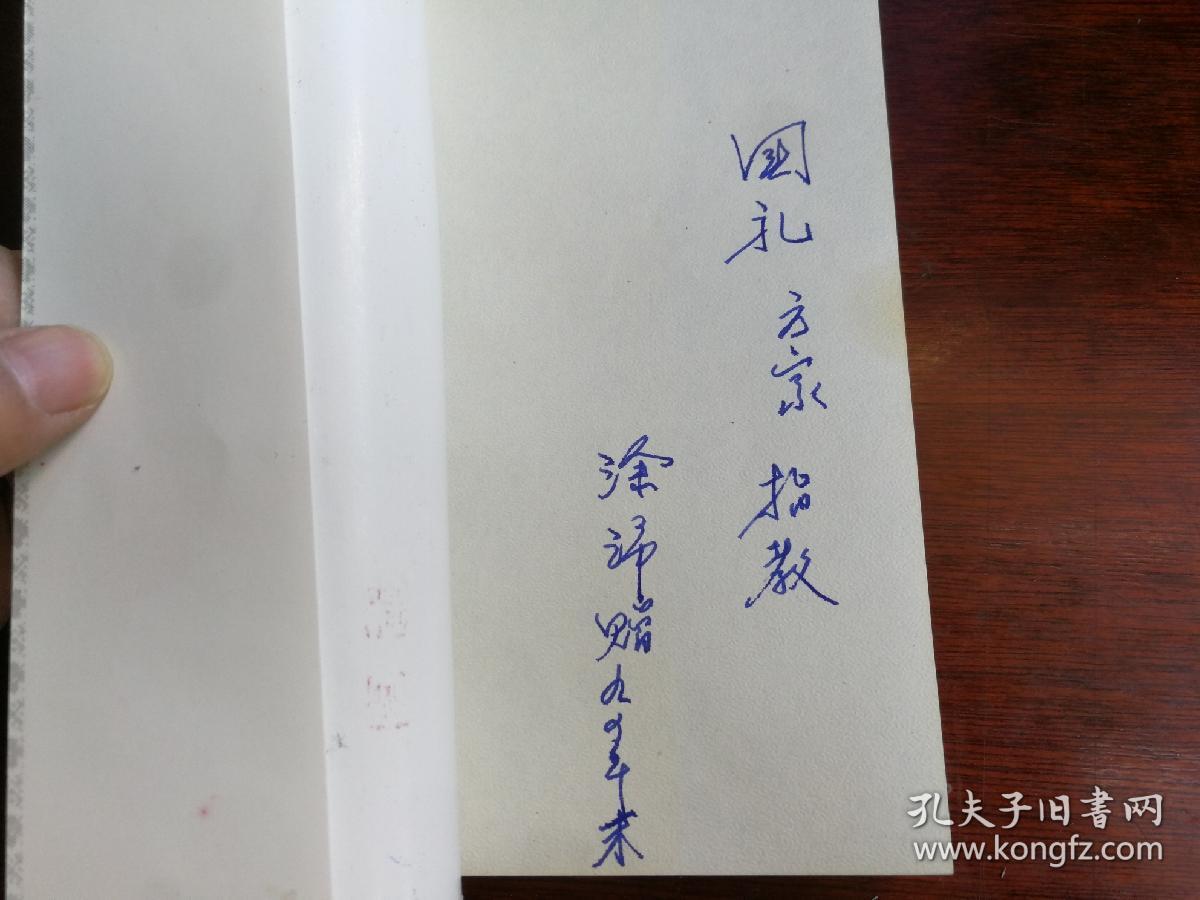 国礼 方家 指教
涂 谛 赠 九 年末
孔夫子旧书网
www.kongfz.com